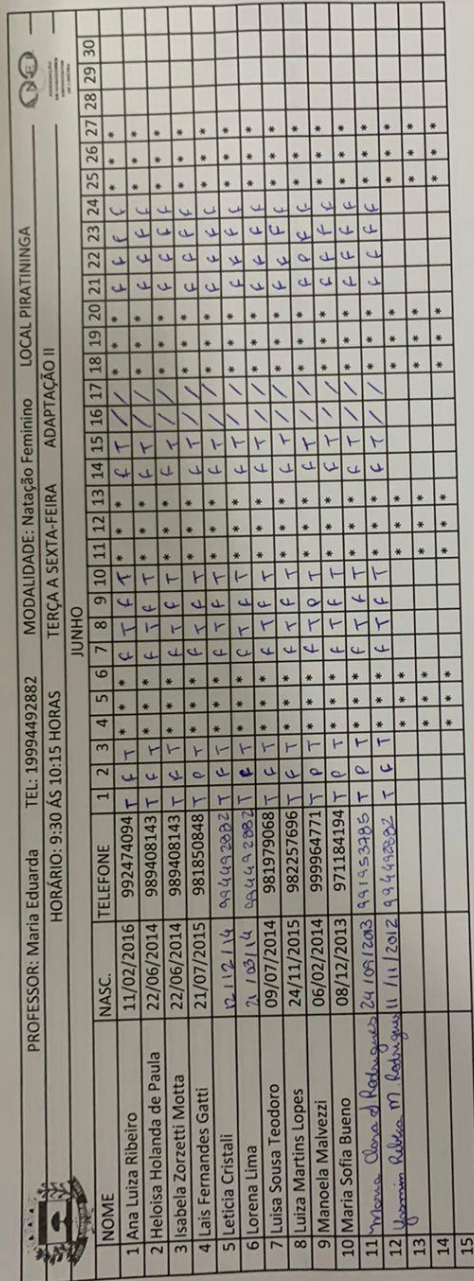 PROFESSOR: Maria Eduarda TEL: 19994492882 MODALIDADE: Natação Feminino LOCAL PIRATININGA
HORÁRIO: 9:30 ÁS 10:15 HORAS TERÇA A SEXTA-FEIRA ADAPTAÇÃO II
JUNHO
NOME NASC. TELEFONE 1 2 3 4 5 6 7 8 9 10 11 12 13 14 15 16 17 18 19 20 21 22 23 24 25 26 27 28 29 30
1 Ana Luiza Ribeiro 11/02/2016 992474094 T F T * * * F T F T * * * F T / / * * * F F F F * * *
2 Heloisa Holanda de Paula 22/06/2014 989408143 T F T * * * F T F T * * * F T / / * * * F F F F * * *
3 Isabela Zorzetti Motta 22/06/2014 989408143 T F T * * * F T F T * * * F T / / * * * F F F F * * *
4 Lais Fernandes Gatti 21/07/2015 981850848 T P T * * * F T F T * * * F T / / * * * F F F F * * *
5 Leticia Cristali 12/12/14 994492882 T F T * * * F T F T * * * F T / / * * * F F F F * * *
6 Lorena Lima 21/03/14 994492882 T F T * * * F T F T * * * F T / / * * * F F F F * * *
7 Luisa Sousa Teodoro 09/07/2014 981979068 T F T * * * F T F T * * * F T / / * * * F F F F * * *
8 Luiza Martins Lopes 24/11/2015 982257696 T F T * * * F T F T * * * F T / / * * * F F F F * * *
9 Manoela Malvezzi 06/02/2014 999964771 T P T * * * F T P T * * * F T / / * * * F P F F * * *
10 Maria Sofia Bueno 08/12/2013 971184194 T P T * * * F T F T * * * F T / / * * * F F F F * * *
11 Maria Clara Rodrigues 24/09/2013 991953785 T P T * * * F T F T * * * F T / / * * * F F F F * * *
12 Yasmin Rebeca M. Rodrigues 11/11/2012 994492882 T F T * * * F T F T * * * F T / / * * * F F F F * * *
13 * * * * * * * * * * * *
14 * * * * * * * * * * * *
15